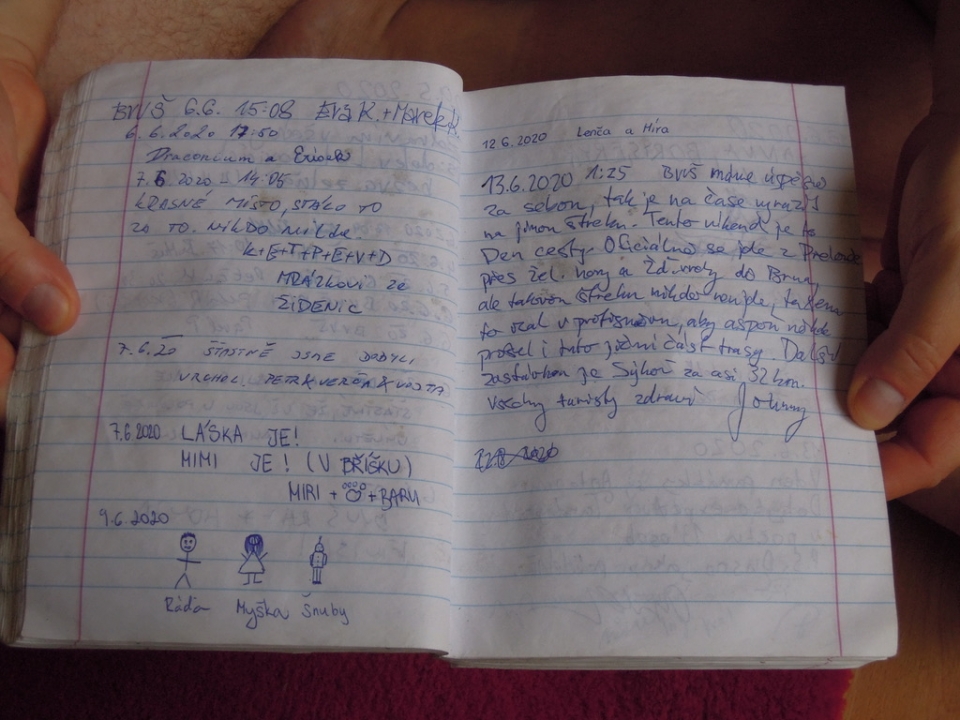 BVVŠ 6.6. 15:08 Eva K. + Marek K.
6.6.2020 17:50
Draconium a
7.6.2020 - 14:05
KRASNÉ MÍSTO, STÁLO TO
ZA TO. NIKDO NIKDE.
K+E+T+P+E+V+D
MRÁZKOVI ZE
ŽIDENIC
7.6.20 ŠŤASTNĚ JSME DOBYLI
VRCHOL. PETR & VERČA & VOJTA
7.6.2020 LÁSKA JE!
MIMI JE! (V BŘÍŠKU)
MIRI + + BARU
9.6.2020
Ráďa Myška Šnuby
12.6.2020 Lenča a Míra
13.6.2020 1:25 BVVŠ máme úspěšně
za sebou, tak je na čase vyrazit
na jinou štreku. Tento víkend je to
Den cesty. Oficiálně se jde z
přes Žel. hory a Žď. vrchy do Brna,
ale takovou štreku nikdo nenjde, tak sem
to vzal v protisměru, aby aspoň někdo
prošel i tuto jižní část trasy. Další
zastávkou je Sýkoř za asi 32 km.
Všechny turisty zdraví Johnny
12.8.2020